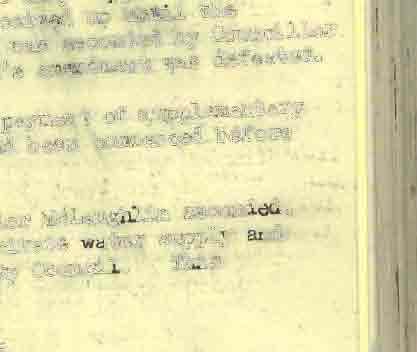 the
was seconded by Councillor
's amendment was defeated.
payment of supplementary
been commenced before
or McLaughlin seconded.
water supply and
y Council. This